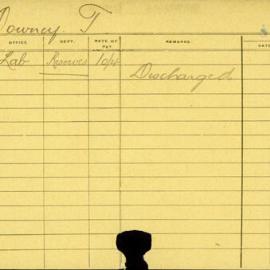 Downey. T
OFFICE. DEPT. RATE OF PAY REMARKS. DATE
Lab Reserves 10/4 Discharged